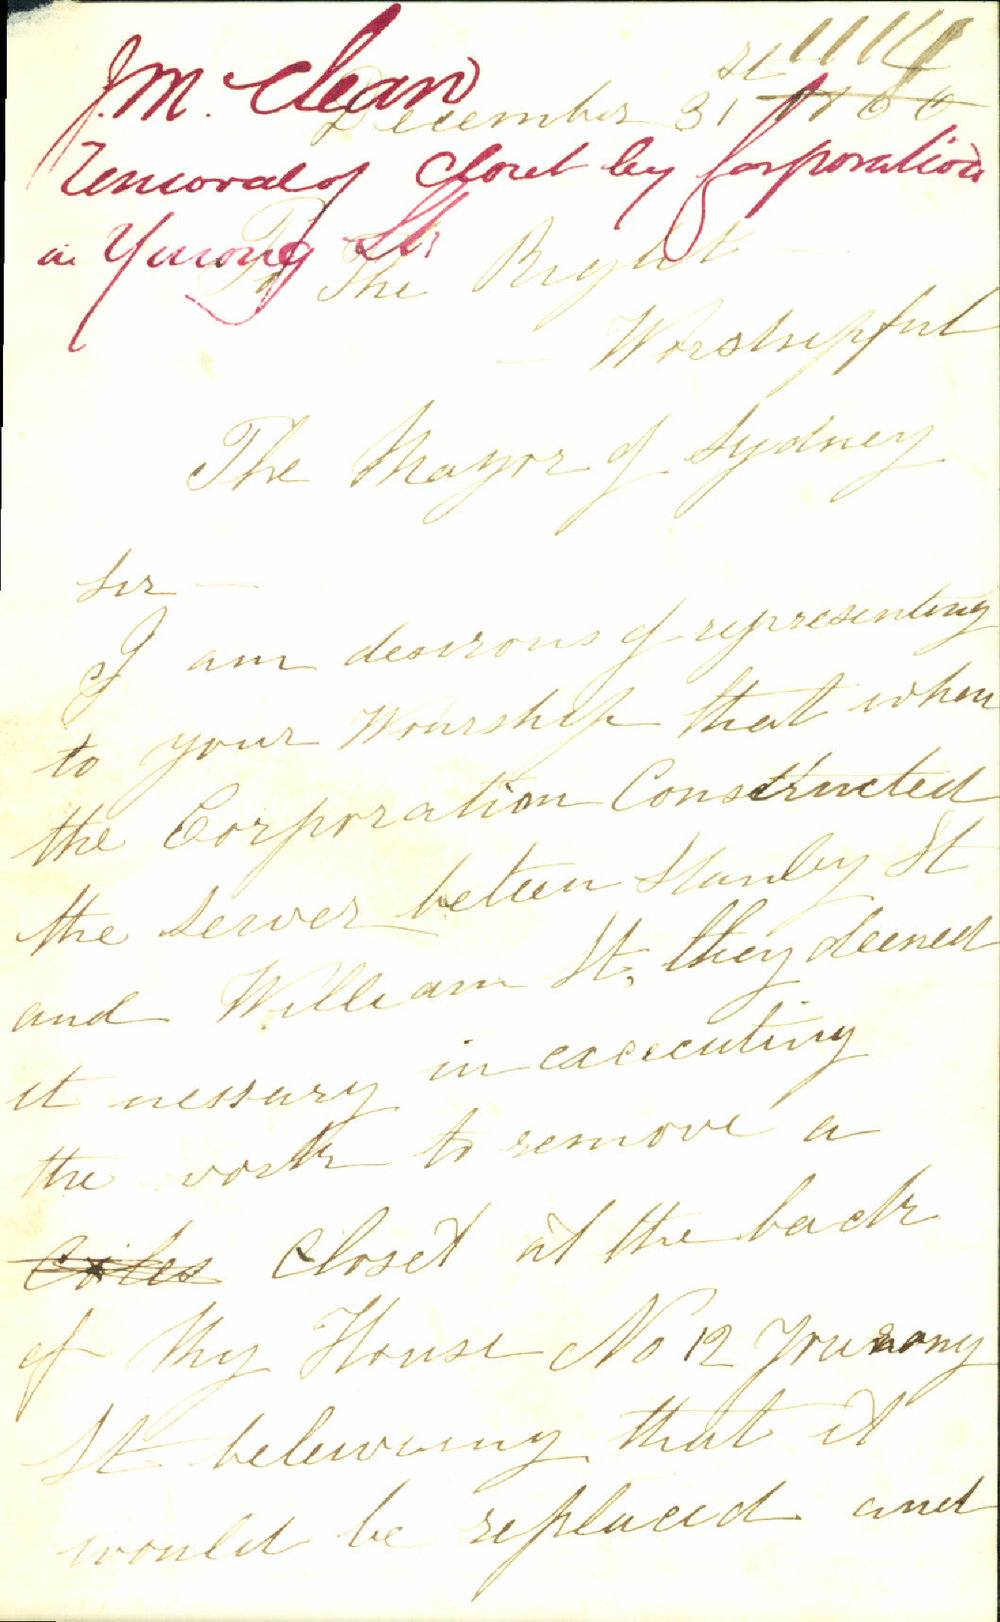 J. McClean
December 31st 1866
removal of Closet by Corporation
in Yurong Str
To The Right
Worshipful
The Mayor of Sydney
Sir —
I am desirous of representing
to your Wourship that when
the Corporation Constructed
the Sewer beteen Stanley St
and William St, they deemed
it nessary in excecuting
the work to remove a
Closet at the back
of My House No 12 Yourong
St beleiveing that it
would be replaced and